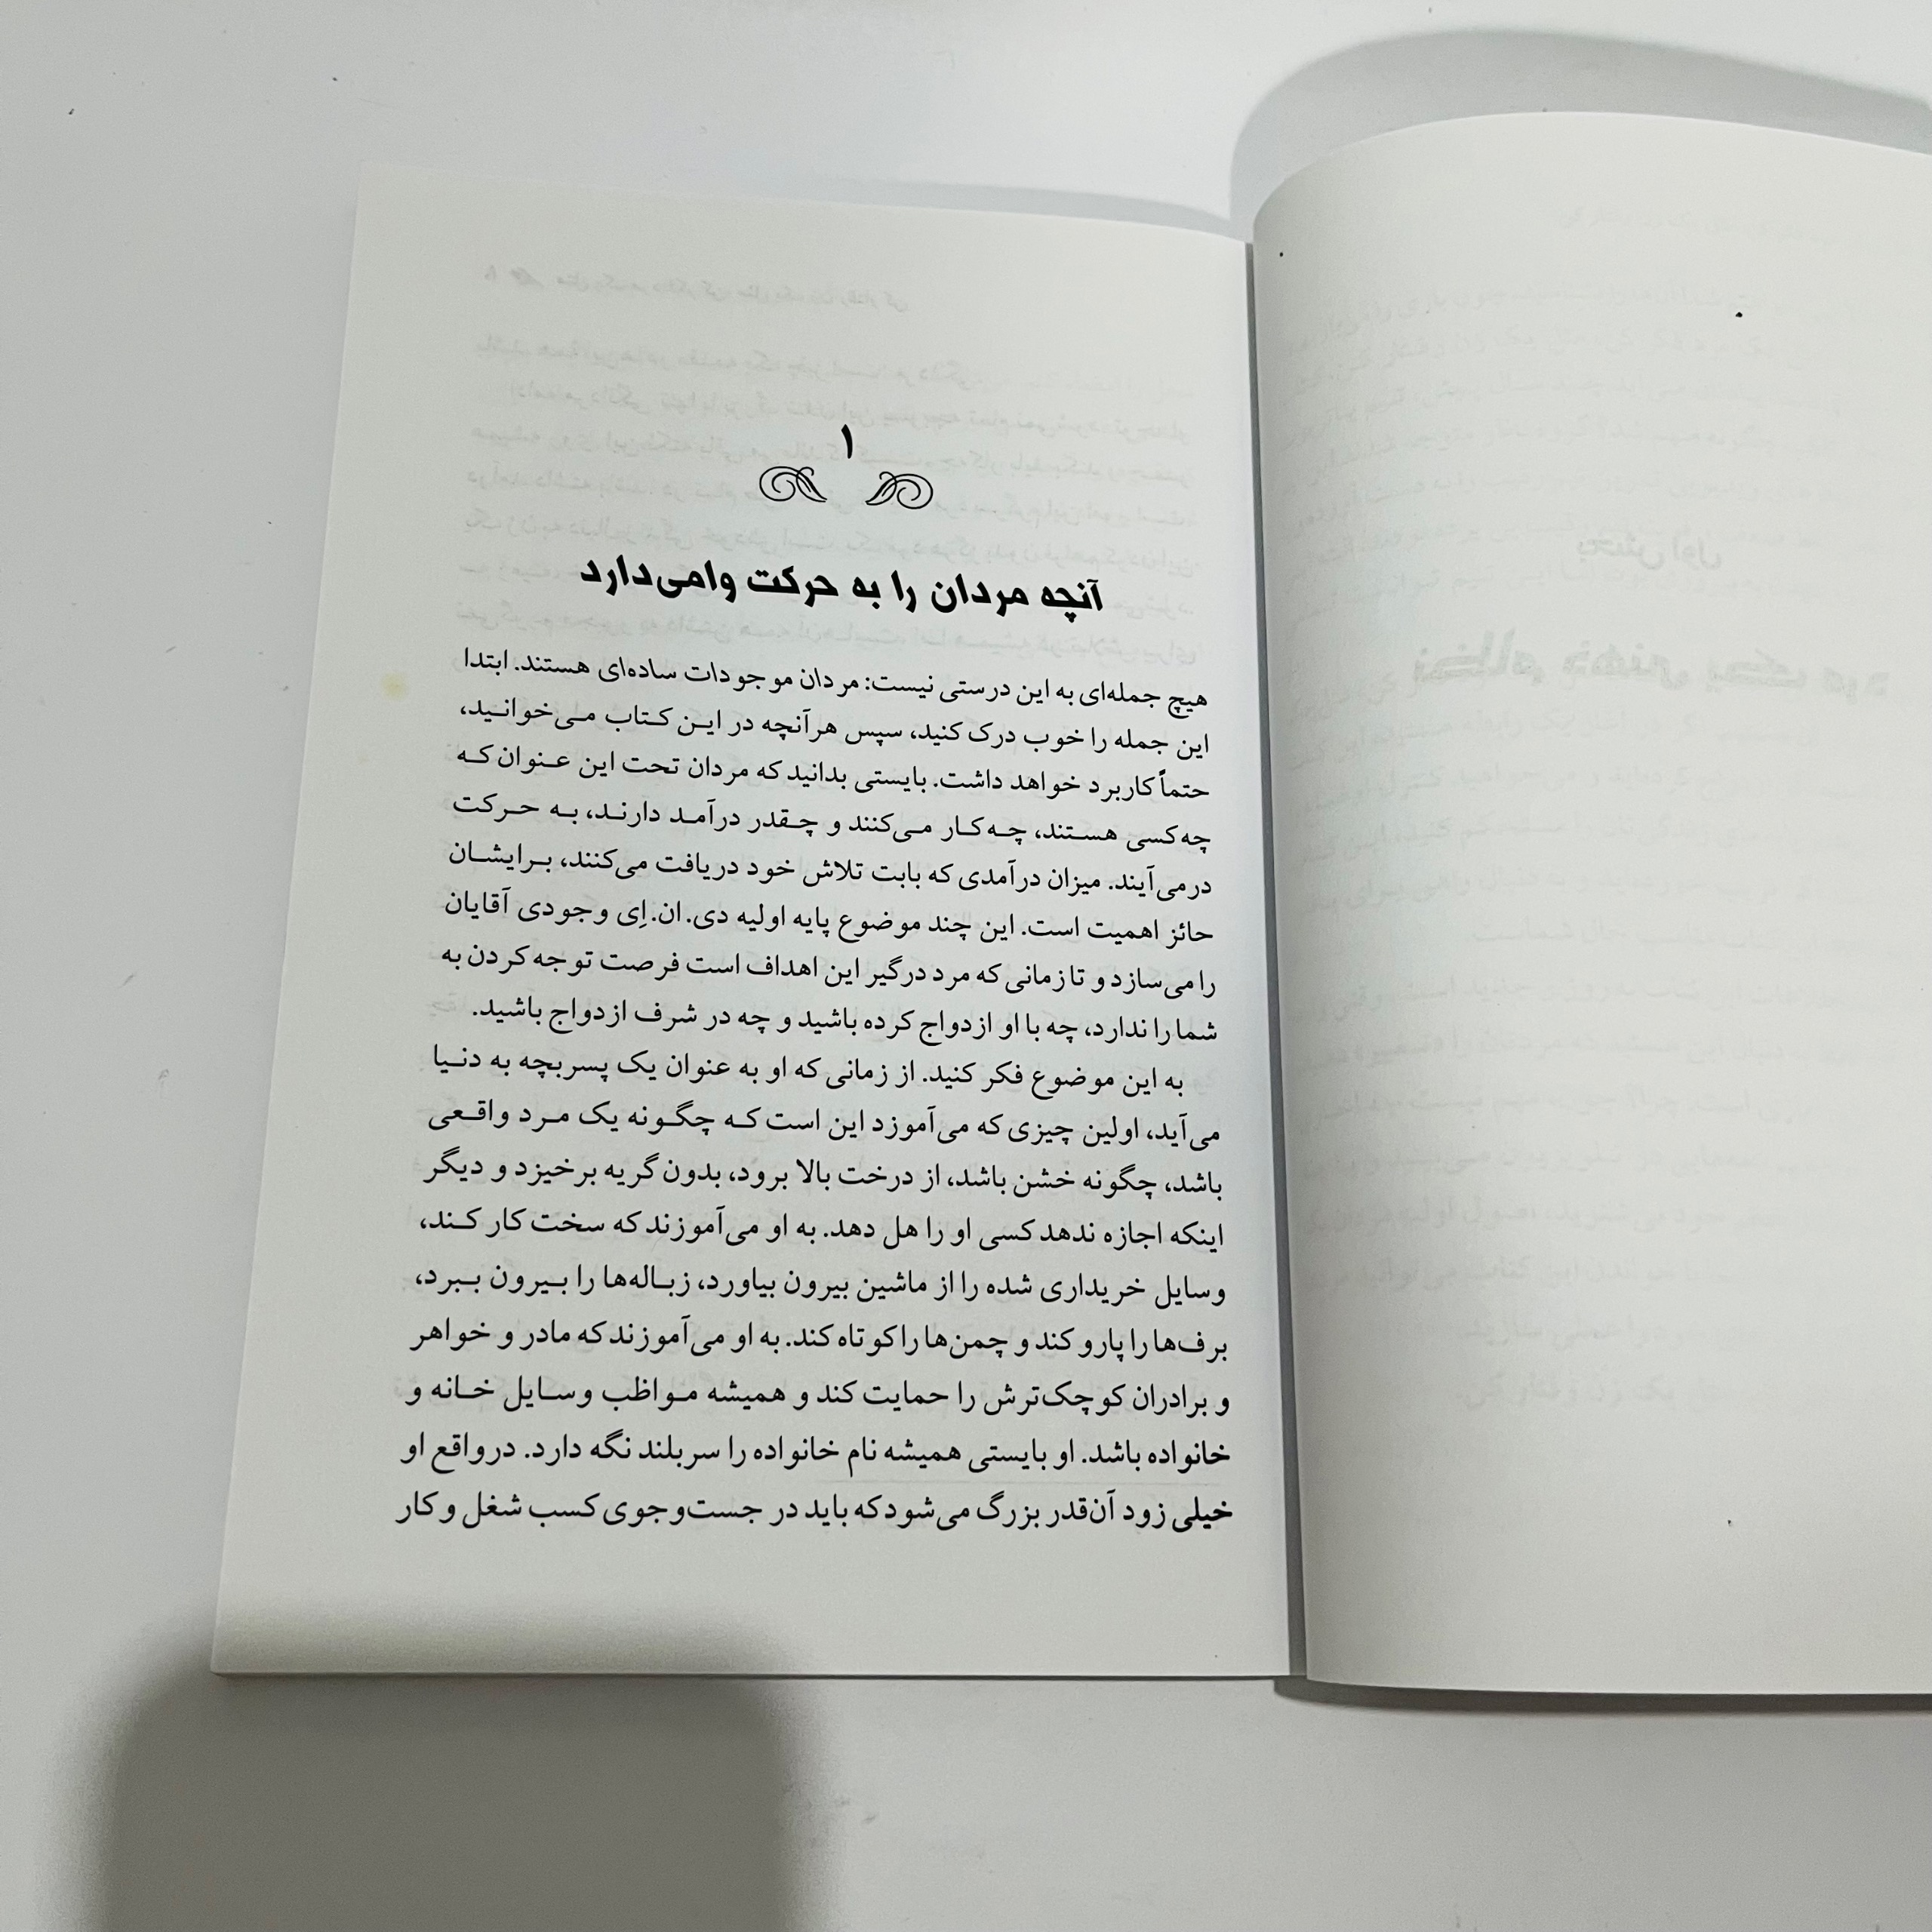 ۱
آنچه مردان را به حرکت وامی‌دارد
هیچ جمله‌ای به این درستی نیست: مردان موجودات ساده‌ای هستند. ابتدا
این جمله را خوب درک کنید، سپس هرآنچه در این کتاب می‌خوانید،
حتماً کاربرد خواهد داشت. بایستی بدانید که مردان تحت این عنوان که
چه کسی هستند، چه کار می‌کنند و چقدر درآمد دارند، به حرکت
درمی‌آیند. میزان درآمدی که بابت تلاش خود دریافت می‌کنند، برایشان
حائز اهمیت است. این چند موضوع پایه اولیه دی.ان.اِی وجودی آقایان
را می‌سازد و تا زمانی که مرد درگیر این اهداف است فرصت توجه کردن به
شما را ندارد، چه با او ازدواج کرده باشید و چه در شرف ازدواج باشید.
به این موضوع فکر کنید. از زمانی که او به عنوان یک پسربچه به دنیا
می‌آید، اولین چیزی که می‌آموزد این است که چگونه یک مرد واقعی
باشد، چگونه خشن باشد، از درخت بالا برود، بدون گریه برخیزد و دیگر
اینکه اجازه ندهد کسی او را هل دهد. به او می‌آموزند که سخت کار کند،
وسایل خریداری شده را از ماشین بیرون بیاورد، زباله‌ها را بیرون ببرد،
برف‌ها را پارو کند و چمن‌ها را کوتاه کند. به او می‌آموزند که مادر و خواهر
و برادران کوچک‌ترش را حمایت کند و همیشه مواظب وسایل خانه و
خانواده باشد. او بایستی همیشه نام خانواده را سربلند نگه دارد. درواقع او
خیلی زود آن‌قدر بزرگ می‌شود که باید در جست‌وجوی کسب شغل و کار
بخش اول
نظام ذهنی یک مرد